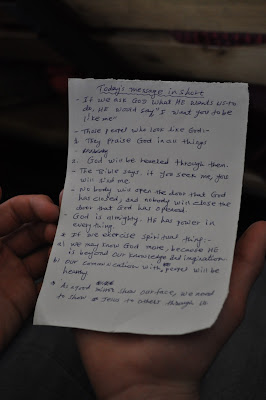 Today's message in short
- If we ask God what HE wants us to
do, HE would say "I want you to be
like me"
- Those people who look like God:-
1. They praise God in all things
2. God will be honoured through them.
- The Bible says, if you seek me, you
will find me.
- Nobody will open the door that God
has closed, and nobody will close the
door that God has opened.
- God is almighty. He has power in
everything.
* If we exercise spiritual thing:-
a) we may know God more, because HE
is beyond our knowledge and imagination
b) our communication with people will be
heavenly
* As a mirror show our face, we need
to show Jesus to others through us